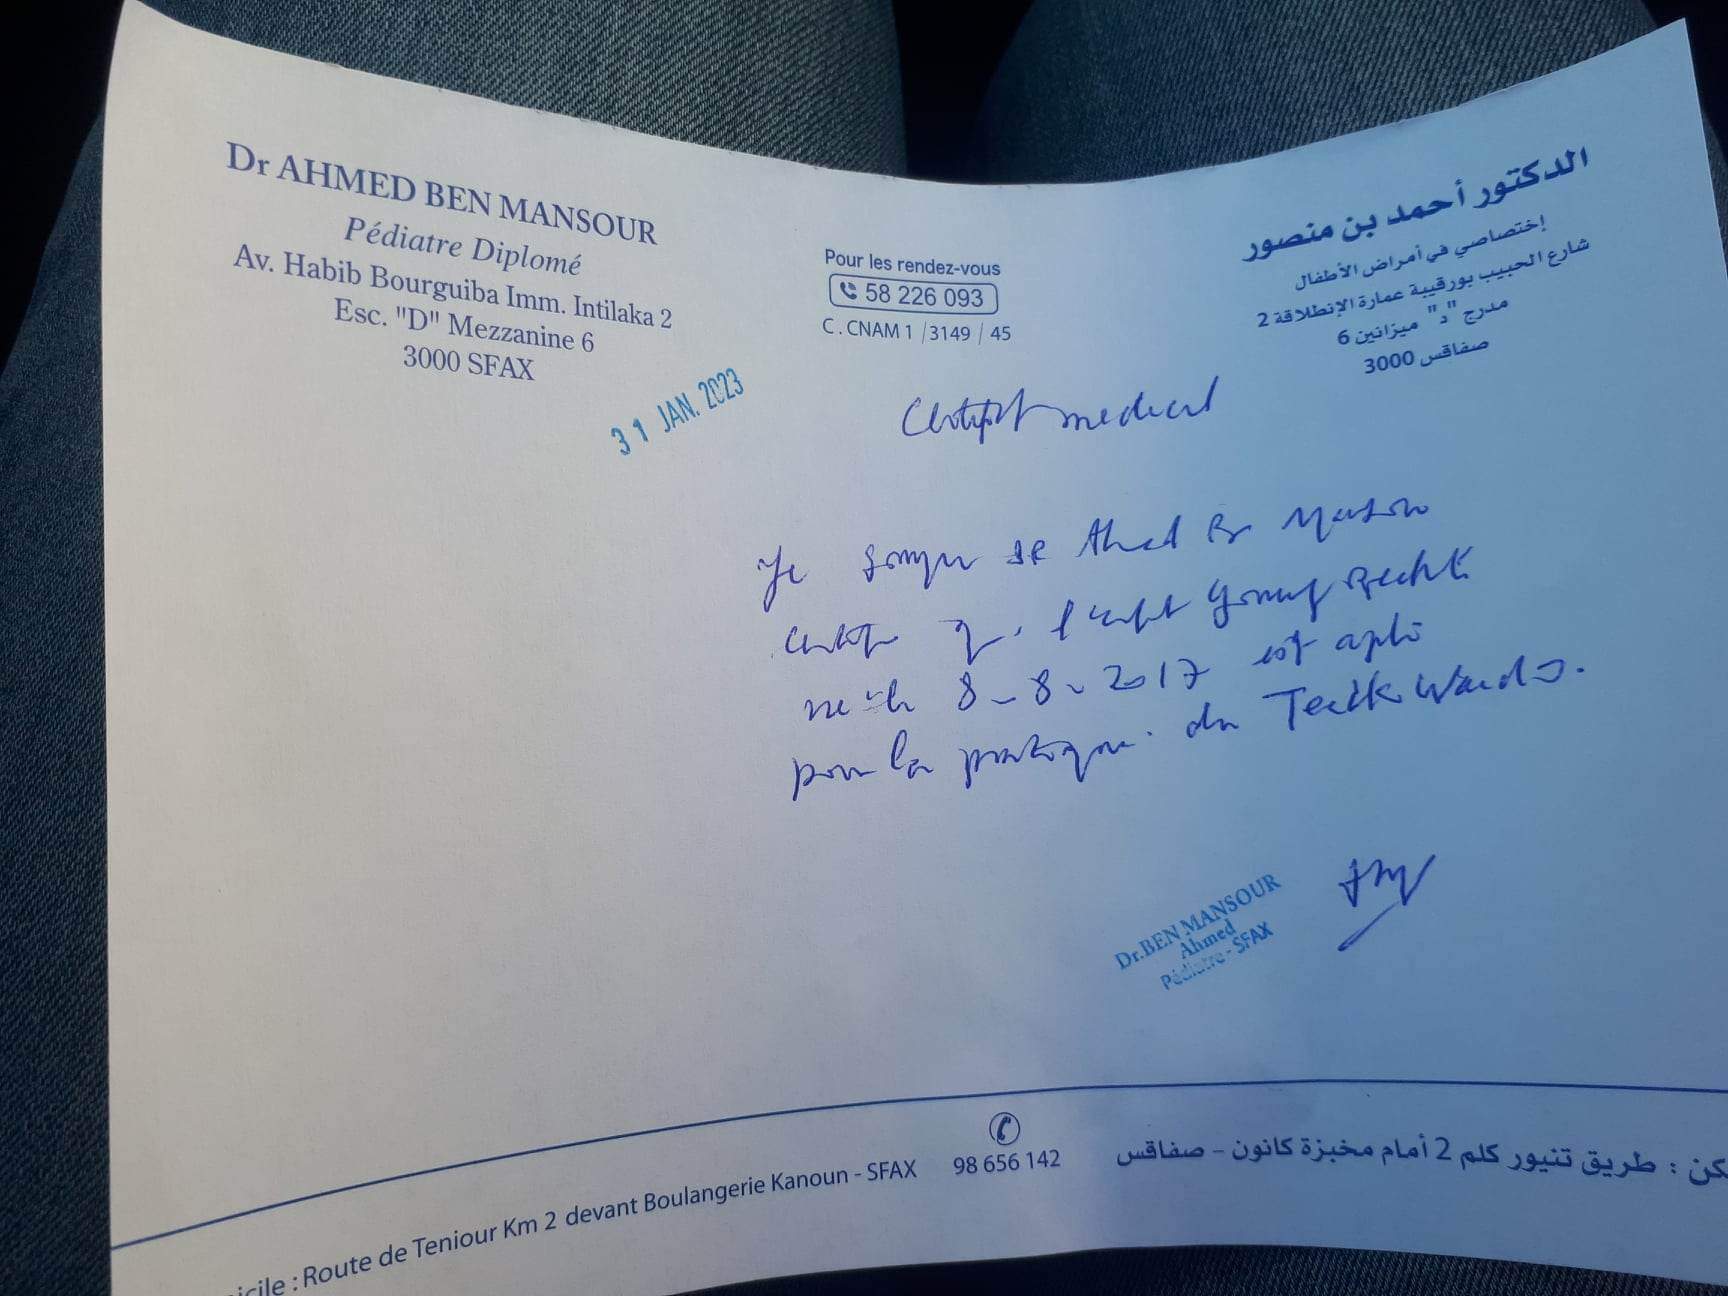 Dr AHMED BEN MANSOUR
Pédiatre Diplomé
Av. Habib Bourguiba Imm. Intilaka 2
Esc. "D" Mezzanine 6
3000 SFAX
Pour les rendez-vous
58 226 093
C.CNAM 1 /3149 / 45
الدكتور أحمد بن منصور
إختصاصي في أمراض الأطفال
شارع الحبيب بورقيبة عمارة الإنطلاقة 2
مدرج "د" ميزانين 6
صفاقس 3000
31 JAN. 2023
medical
Je Ahmed
l'
8-8-2017 est apte
pour la pratique du
Dr.BEN MANSOUR
Ahmed
Pédiatre - SFAX
icile : Route de Teniour Km 2 devant Boulangerie Kanoun - SFAX
98 656 142
كن : طريق تنيور كلم 2 أمام مخبزة كانون - صفاقس